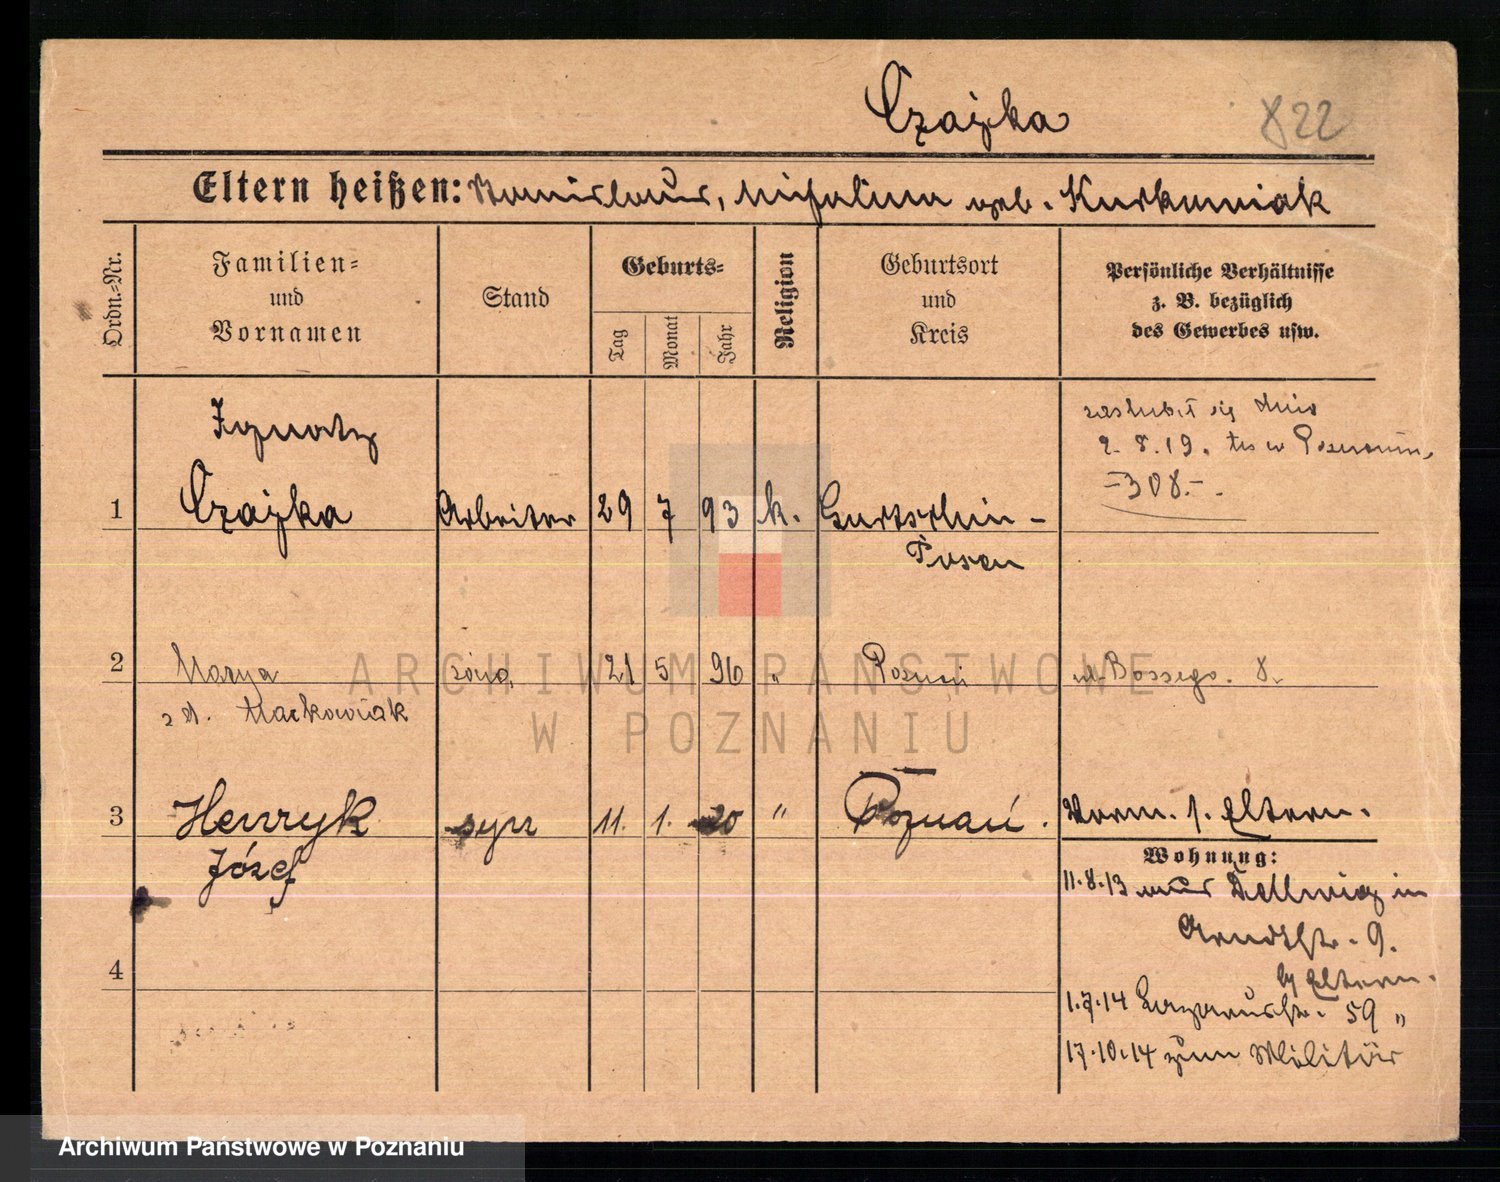 Czajka
822
Eltern heißen: Stanislaus, Michalina geb. Kurkowiak
Ordn.=Nr.
Familien=
und
Vornamen
Stand
Geburts=
Tag
Monat
Jahr
Religion
Geburtsort
und
Kreis
Persönliche Verhältnisse
z. B. bezüglich
des Gewerbes usw.
zaślubił się dnia
2.8.19. tu w Poznaniu,
-308.-
Ignatz
1 Czajka Arbeiter 29 7 93 k. Gurtschin -
Posen
2 Marya żona 21 5 96 " Poznań ul. Bossego. 8.
z d. Maćkowiak
3 Henryk syn 11. 1. 20 " Poznań. Verm. s. Eltern.
Józef
Wohnung:
11.8.13 aus in
Arndtstr. 9.
b/ Eltern.
4
1.7.14 Lazarusstr. 59 "
17.10.14 zum Militär
ARCHIWUM PAŃSTWOWE
W POZNANIU
Archiwum Państwowe w Poznaniu